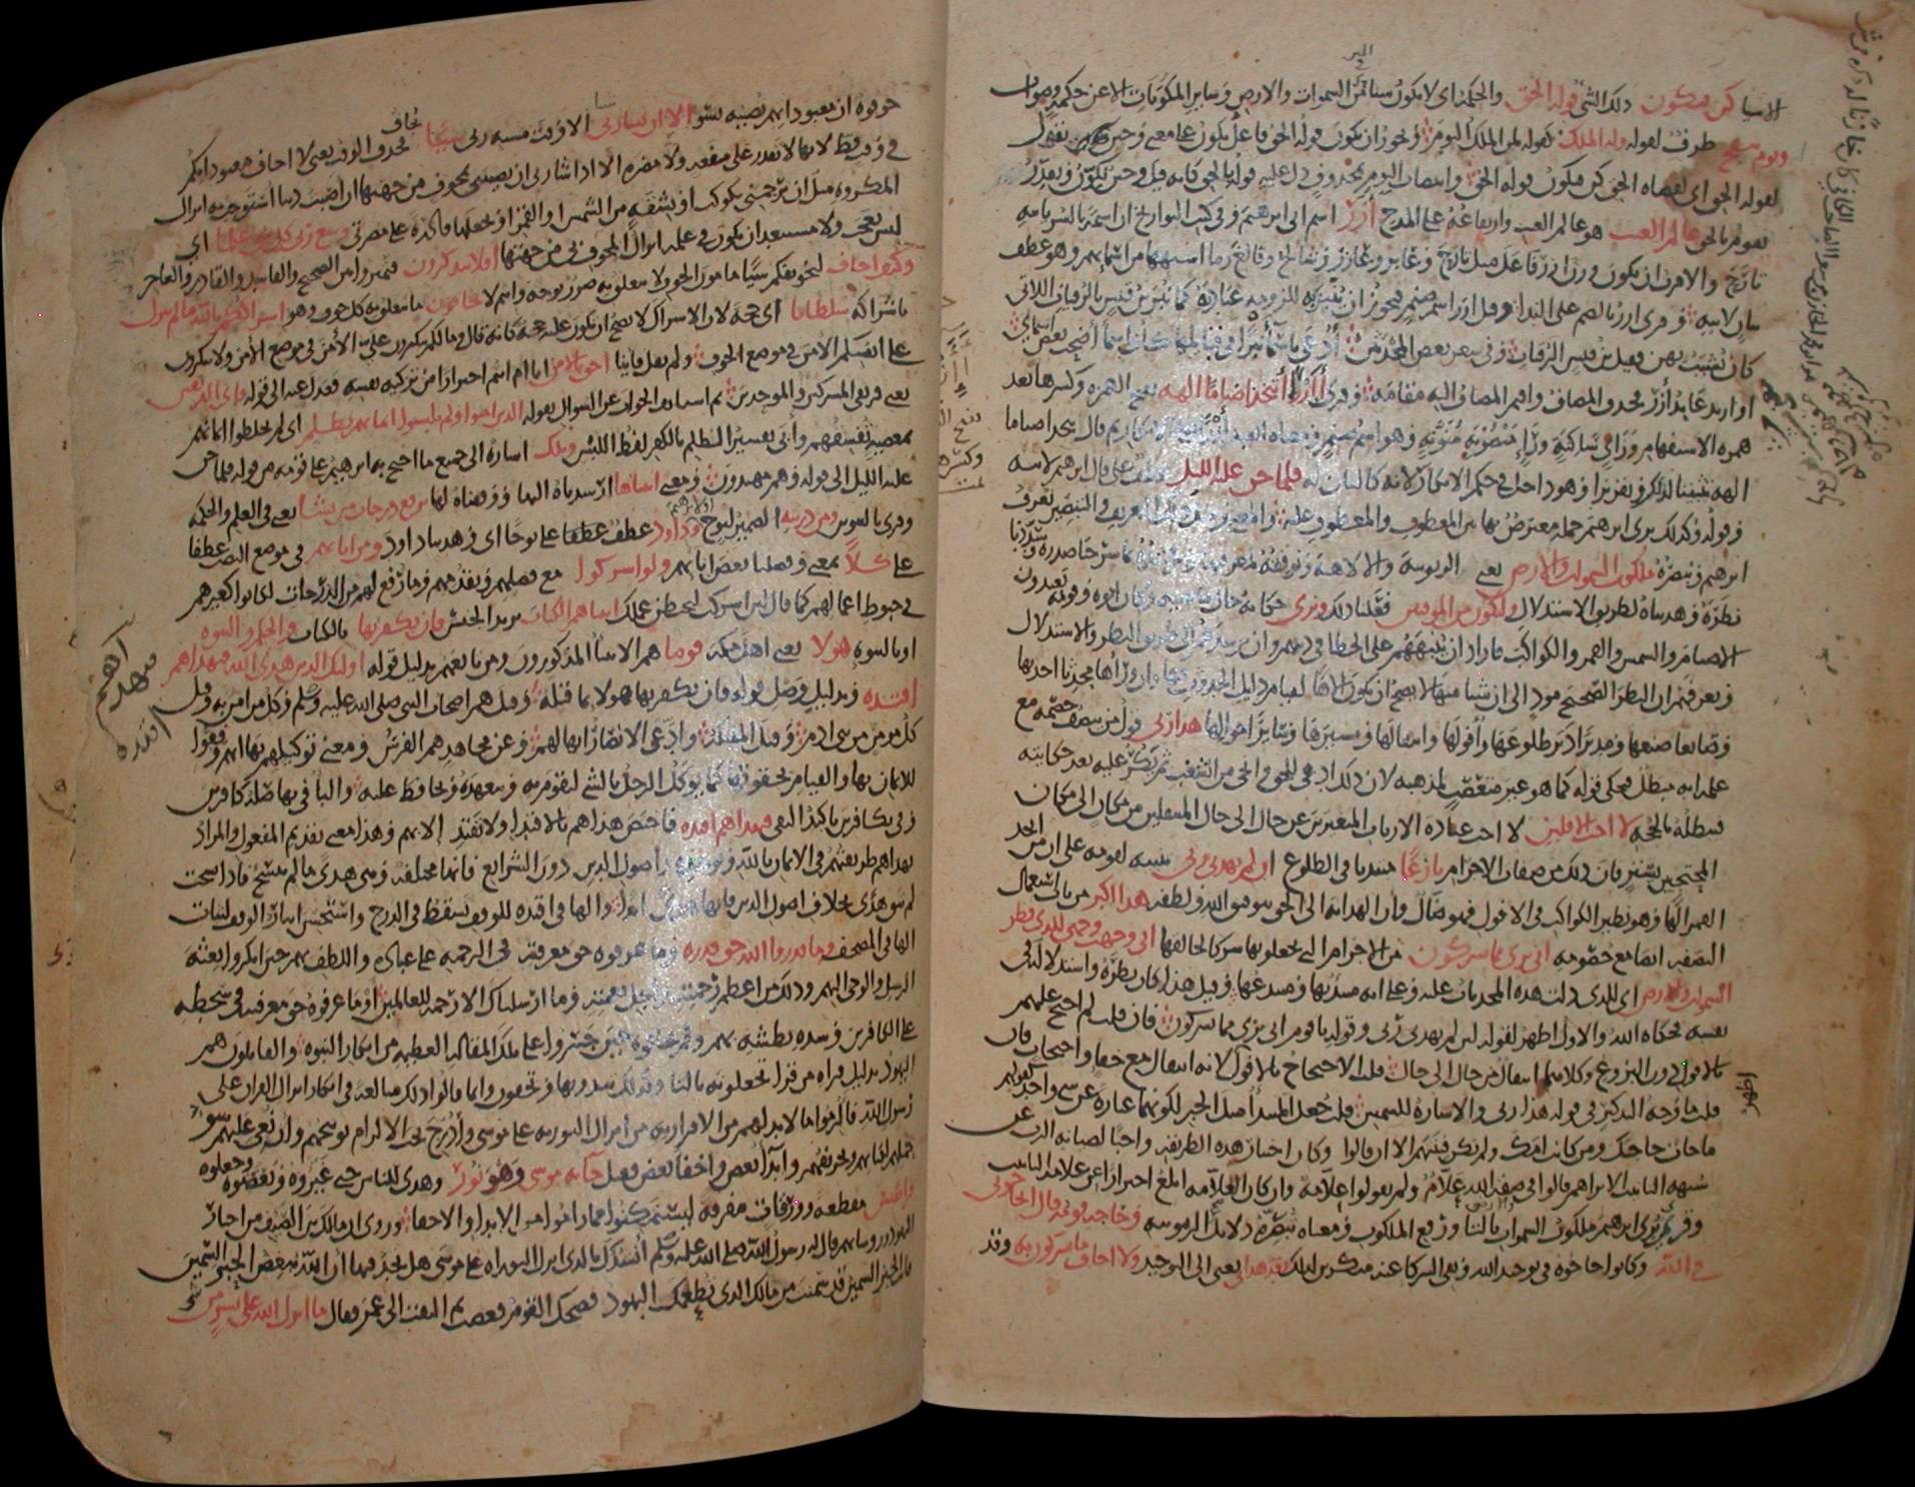 الاشيا كن فيكون ذلك الشي قوله الحق والحكمة اى لا يكون شيئا من السموات والارض وساير المكونات الا عن حكمة وصواب
ويوم ينفخ ظرف لقوله وله الملك كقوله لمن الملك اليوم ويجوز ان يكون قوله الحق فاعل يكون على معنى وحين يقول
لقوله الحق اى لقضاه الحق كن فيكون قوله الحق وانتصاب اليوم بمحذوف دل عليه قوله بالحق كانه قيل وحين يكون ويقدر
يقوم بالحق عالم الغيب هو عالم الغيب وارتفاعه على المدح آزر اسم ابى ابرهيم وفى كتب التواريخ ان اسمه بالسريانيه
تارح والاقرب ان يكون وزن ازر فاعل مثل تارح وعابر وعازر وشالخ وفالغ وما اشبهها من اسمايهم وهو عطف
بيان لابيه وقرى ازر بالضم على الندا وقيل ازر اسم صنم فيجوز ان ينبز به للزومه عبادته كما نبز بن قيس بالرقيات اللاتى
كان يشبب بهن فقيل بن قيس الرقيات وفى شعر بعض المحدثين ادعى باسما نبزا فى قبايلها كان اسما اضحت بعض اسماى
او اريد عابد آزر فحذف المضاف واقيم المضاف اليه مقامه وقرى أأزر أتتخذ اصناما الهه بفتح الهمزه وكسرها بعد
همزه الاستفهام وزاى ساكنه وراء منصوبه منونه وهو اسم صنم ومعناه اتعبد ازرا ثم قال تتخذ اصناما
الهه تثبيتا لذلك وتقريرا وهو داخل فى حكم الانكار لانه كالبيان له فلما جن عليه الليل عطف على قال ابرهيم لابيه
وقوله وكذلك نرى ابرهيم جمله معترض بها بين المعطوف والمعطوف عليه والمعنى ومثل ذلك التعريف والتبصير نعرف
ابرهيم ونبصره ملكوت السموات والارض يعنى الربوبيه والالاهيه ونوفقه لمعرفتها ونرشده بما شرحنا صدره وسددنا
نظره وهديناه لطريق الاستدلال وليكون من الموقنين فعلنا ذلك ونرى حكايه حال ماضيه وكان ابوه وقومه يعبدون
الاصنام والشمس والقمر والكواكب فاراد ان ينبههم على الخطا فى دينهم وان يرشدهم الى طريق النظر والاستدلال
ويعرفهم ان النظر الصحيح مود الى ان شيا منها لا يصح ان يكون الاها لقيام دليل الحدوث فيها وان وراها محدثا احدثها
وصانعا صنعها ومدبرا دبر طلوعها وافولها وانتقالها ومسيرها وساير احوالها هذا ربى قول من ينصف خصمه مع
علمه انه مبطل فيحكى قوله كما هو غير متعصب لمذهبه لان ذلك ادعى للحق وانجى من الشغب ثم يكر عليه بعد حكايته
فيبطله بالحجه لا احب الافلين لا احب عباده الارباب المتغيرين عن حال الى حال المنتقلين من مكان الى مكان
المحتجبين بستر فان ذلك من صفات الاجرام بازغا مبتديا فى الطلوع لئن لم يهدنى ربى تنبيه لقومه على ان من اتخذ
القمر الها وهو نظير الكواكب فى الافول فهو ضال وان الهدايه الى الحق بتوفيق الله ولطفه هذا اكبر من باب استعمال
النصفه ايضا مع خصومه انى برى مما تشركون من الاجرام التى تجعلونها شركا لخالقها انى وجهت وجهى للذى فطر
السموات والارض اى للذى دلت هذه المحدثات عليه وعلى انه مبتديها ومبتدعها وقيل هذا كان نظره واستدلاله فى
نفسه فحكاه الله والاول اظهر لقوله لئن لم يهدنى ربى وقوله يا قوم انى برى مما تشركون فان قلت لم احتج عليهم
بالافول دون البزوغ وكلاهما انتقال من حال الى حال قلت الاحتجاج بالافول لانه انتقال مع خفا واحتجاب فان
قلت ما وجه التذكير فى قوله هذا ربى والاشاره للشمس قلت جعل المبتدا مثل الخبر لكونهما عباره عن شى واحد كقولهم
ما جات حاجتك ومن كانت امك ولم تكن فتنتهم الا ان قالوا وكان اختيار هذه الطريقه واجبا لصيانه الرب عن
شبهه التانيث الا تراهم قالوا فى صفه الله علام ولم يقولوا علامه وان كان العلامه ابلغ احترازا من علامه التانيث
وقرى ترى ابرهيم ملكوت السموات بالتا ورفع الملكوت ومعناه تبصره دلايل الربوبيه وحاجه قومه قال اتحاجونى
فى الله وكانوا حاجوه فى توحيد الله ونفى الشركا عنه منكرين لذلك وقد هدانى يعنى الى التوحيد ولا اخاف ما تشركون به وقد
خوفوه ان معبوداتهم تصيبه بسو الا ان يشا ربى الا وقت مشيه ربى شيا يخاف فحذف الوقت يعنى لا اخاف معبوداتكم
فى وقت قط لانها لا تقدر على منفعه ولا مضره الا اذا شا ربى ان يصيبنى بمخوف من جهتها ان اصبت ذنبا استوجب به انزال
المكروه مثل ان يرجمنى بكوكب او بشقه من الشمس او القمر او يجعلها قادره على مضرتى وسع ربى كل شى علما اى
ليس بعجب ولا مستبعد ان يكون فى علمه انزال المخوف بى من جهتها افلا تتذكرون فتميزوا بين الصحيح والفاسد والقادر والعاجز
وكيف اخاف لتخويفكم شيا مامون الخوف لا يتعلق به ضرر بوجه وانتم لا تخافون ما يتعلق به كل مخوف وهو اشراككم بالله ما لم ينزل
باشراكه سلطانا اى حجه لان الاشراك لا يصح ان يكون عليه حجه كانه قال وما لكم تنكرون على الامن فى موضع الامن ولا تنكرون
على انفسكم الامن فى موضع الخوف ولم يقل فاينا احق بالامن انا ام انتم احترازا من تزكيه نفسه فعدل عنه الى قوله فاى الفريقين
يعنى فريقى المشركين والموحدين ثم استانف الجواب عن السوال بقوله الذين امنوا ولم يلبسوا ايمانهم بظلم اى لم يخلطوا ايمانهم
بمعصيه تفسقهم وابى تفسير الظلم بالكفر لفظ اللبس وتلك اشاره الى جميع ما احتج به ابرهيم على قومه من قوله فلما جن
عليه الليل الى قوله وهم مهتدون ومعنى اتيناها ارشدناه اليها ووفقناه لها نرفع درجات من نشا يعنى فى العلم والحكمه
وقرى بالتنوين ومن ذريته الضمير لنوح وداود عطف عطفا على نوحا اى وهدينا داود ومن ابايهم فى موضع النصب عطفا
على كلا بمعنى وفضلنا بعض ابايهم ولو اشركوا مع فضلهم وتقدمهم وما رفع لهم من الدرجات لكانوا كغيرهم
فى حبوط اعمالهم كما قال لئن اشركت ليحبطن عملك اتيناهم الكتاب يريد الجنس فان يكفر بها بالكتاب والحكم والنبوه
او بالنبوه هولا يعنى اهل مكه قوما هم الانبيا المذكورون ومن تابعهم بدليل قوله اولئك الذين هدى الله فبهداهم
اقتده وبدليل وصل قوله فان يكفر بها هولا بما قبله وقيل هم اصحاب النبى صلى الله عليه وسلم وكل من امن به وقيل
كل مومن من بنى ادم وقيل الملائكه وادعى الانصار انها لهم وعن مجاهد هم الفرس ومعنى توكيلهم بها انهم وفقوا
للايمان بها والقيام بحقوقها كما يوكل الرجل بالشى ليقوم به ويتعهده ويحافظ عليه والبا فى بها صله كافرين
وفى بكافرين تاكيد النفى فبهداهم اقتده فاختص هداهم بالاقتدا ولا تقتد الا بهم وهذا معنى تقديم المفعول والمراد
بهداهم طريقتهم فى الايمان بالله وتوحيده واصول الدين دون الشرايع فانها مختلفه وهى هدى ما لم تنسخ فاذا نسخت
لم تبق هدى بخلاف اصول الدين فانها هدى ابدا والها فى اقتده للوقف تسقط فى الدرج واستحسن ايثار الوقف لثبات
الها فى المصحف وما قدروا الله حق قدره وما عرفوه حق معرفته فى الرحمه على عباده واللطف بهم حين انكروا بعثه
الرسل والوحى اليهم وذلك من اعظم رحمته واجل نعمته وما ارسلناك الا رحمه للعالمين او ما عرفوه حق معرفته فى سخطه
على الكافرين وشده بطشه بهم ولم يخافوه حين جسروا على تلك المقاله العظيمه من انكار النبوه والقايلون هم
اليهود بدليل قراه من قرا تجعلونه بالتا وكذلك تبدونها وتخفون وانما قالوا ذلك مبالغه فى انكار انزال القران على
رسول الله فالزموا ما لا بد لهم من الاقرار به من انزال التوريه على موسى وادرج تحت الالزام توبيخهم وان نعى عليهم سو
جهلهم لكتابهم وتحريفهم وابدا بعض واخفا بعض فقيل جا به موسى وهو نور وهدى للناس حتى غيروه ونقصوه وجعلوه
قراطيس مقطعه وورقات مفرقه ليتمكنوا مما راموا من الابدا والاخفا وروى ان مالك بن الصيف من احبار
اليهود وروسايهم قال له رسول الله صلى الله عليه وسلم انشدك بالذى انزل التوراه على موسى هل تجد فيها ان الله يبغض الحبر السمين
فانت الحبر السمين قد سمنت من مالك الذى تطعمك اليهود فضحك القوم فغضب ثم التفت الى عمر فقال ما انزل الله على بشر من
شى